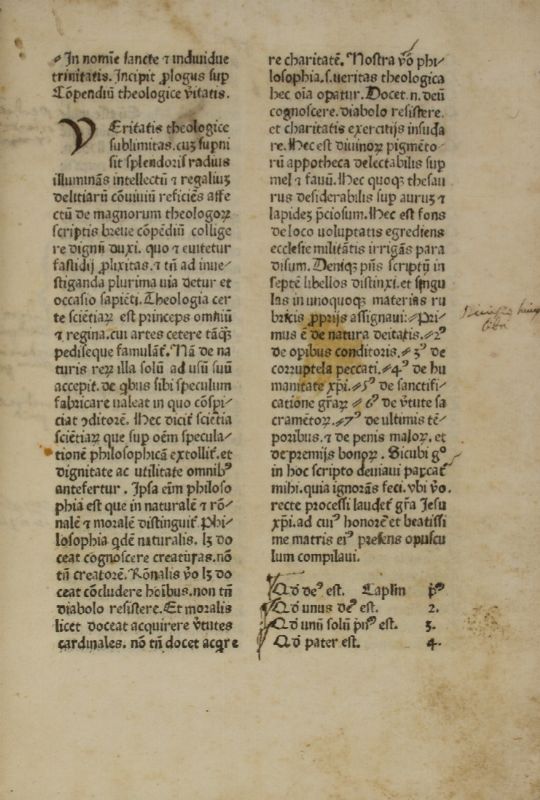 In nomīe sancte ⁊ indiuidue
trinitatis. Incipit ꝓlogus sup
Cōpendiū theologice v̄itatis.
VEritatis theologice
sublimitas. cuȝ supni
sit splendoris radius
illuminās intellectū ⁊ regaliuȝ
delitiarū cōuiuiū reficiēs affe
ctū de magnorum theologoꝝ
scriptis breue cōpēdiū collige
re dignū duxi. quo ⁊ euitetur
fastidiū ꝓlixitas. ⁊ tn̄ ad inue⸗
stiganda plurima via detur et
occasio sapiēti. Theologia cer
te sciētiaꝝ est princeps omniū
⁊ regina. cui artes cetere tāqȝ
pedisseque famulāt᷑. Nā de na
turis reꝝ illa solū ad usū suū
accepit. de qͥbus sibi speculum
fabricare valeat in quo cōspi⸗
ciat ꝯditorē. Hec dicit᷑ sciētia
sciētiaꝝ que sup oēm specula⸗
tionē philosophicā extollit᷑. et
dignitate ac utilitate omnibꝰ
antefertur. Ipsa eīm philoso
phia est que in naturalē ⁊ rō⸗
nalē ⁊ moralē distinguit᷑. Phi⸗
losophia qͥdē naturalis. lȝ do
ceat cognoscere creaturas. nō
tn̄ creatorē. Rōnalis v̄o lȝ do
ceat cōcludere hoībus. non tn̄
diabolo resistere. Et moralis
licet doceat acquirere v̄tutes
cardinales. nō tn̄ docet acqͥre
re charitatē. Nostra v̄o phi⸗
losophia .s. veritas theologica
hec oīa opatur. Docet .n. deū
cognoscere. diabolo resistere.
et charitatis exercitijs insuda
re. Hec est diuinoꝝ pigmēto⸗
rū appotheca delectabilis sup
mel ⁊ fauū. Hec quoqȝ thesau
rus desiderabilis sup auruȝ ⁊
lapideȝ p̄ciosum. Hec est fons
de loco voluptatis egrediens
ecclesie militātis irrigās para
disum. Deniqȝ p̄ns scriptū in
septē libellos distinxi. et singu
las in unoquoqȝ materias ru
bricis ꝓprijs assignaui: Pri⸗
mus ē de natura deitatis. 2ꝰ
de opibus conditoris. 3ꝰ de
corruptela peccati. 4ꝰ de hu
manitate xp̄i. 5ꝰ de sanctifi⸗
catione gr̄aꝝ 6ꝰ de v̄tute sa
cramētoꝝ. 7ꝰ de ultimis tē⸗
poribus. ⁊ de penis maloꝝ. et
de premijs bonoꝝ. Sicubi gͦ
in hoc scripto deuiaui parcat᷑
mihi. quia ignorās feci. vbi v̄o
recte processi laudet᷑ gr̄a Jesu
xp̄i. ad cuiꝰ honorē et beatissi
me matris eiꝰ presens opuscu
lum compilaui.
Qꝺ deꝰ est. Caplm pͥꝰ
Qꝺ unus deꝰ est. 2.
Qꝺ unū solū pͥnꝰ est. 3.
Qꝺ pater est. 4.